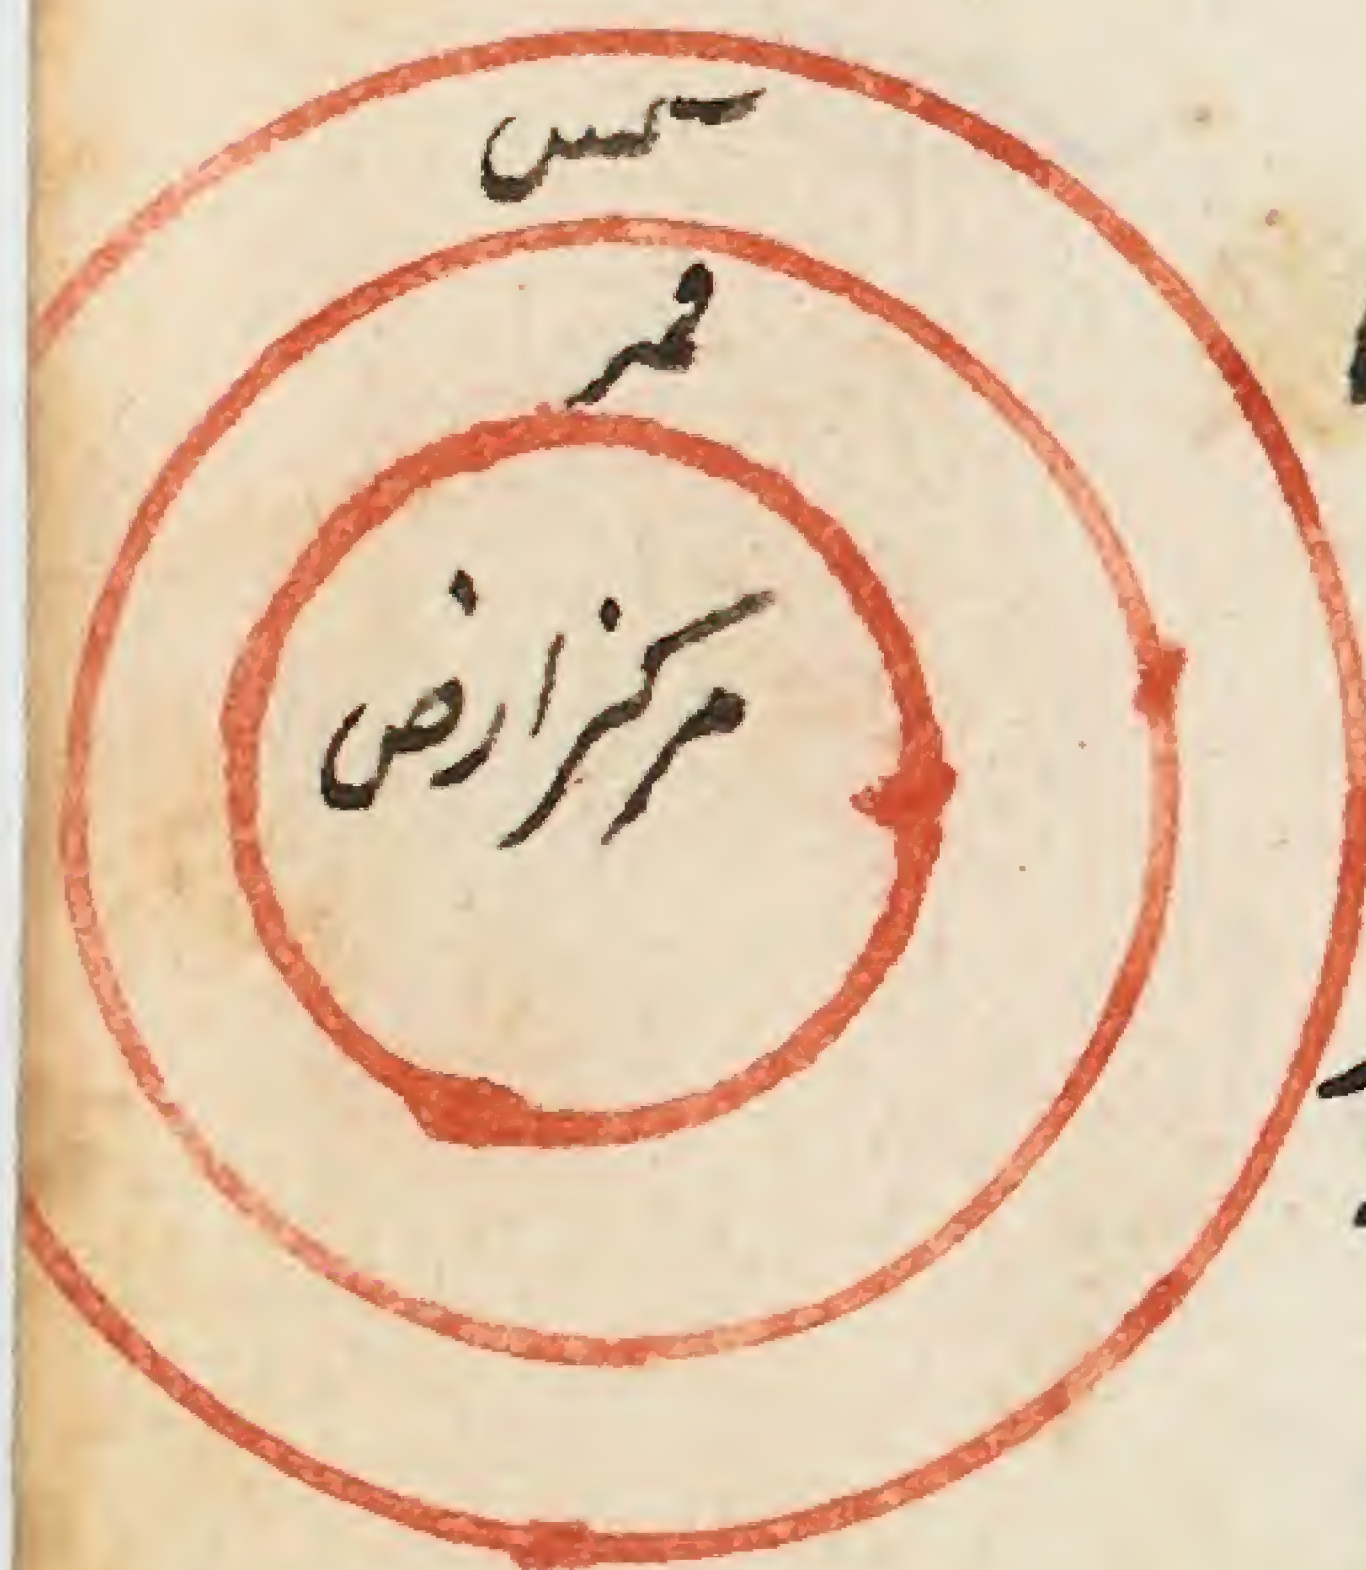 شمس
قمر
مرکز ارض